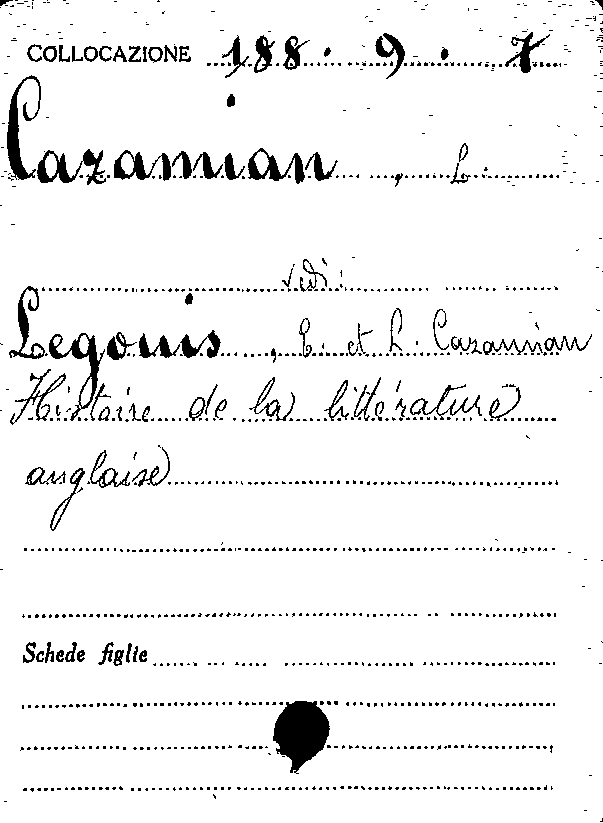 COLLOCAZIONE 188.9.7
Cazamian, L.
vedi:
Legouis, E. et L. Cazamian
Histoire de la littérature
anglaise
Schede figlie